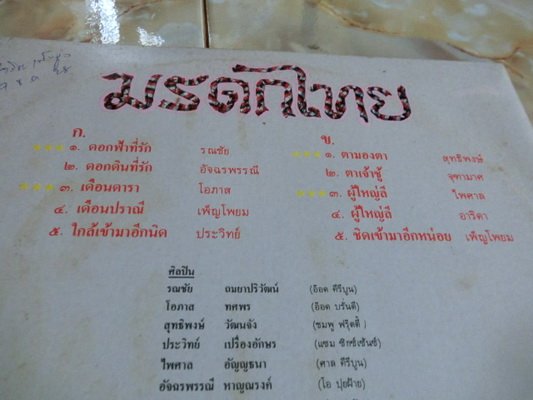 มรดกไทย
ก.
๑. ดอกฟ้าที่รัก รณชัย
๒. ดอกดินที่รัก อัจฉรพรรณี
๓. เดือนดารา โอภาส
๔. เดือนปราณี เพ็ญโพยม
๕. ใกล้เข้ามาอีกนิด ประวิทย์
ข.
๑. ตามองตา สุทธิพงษ์
๒. ตาเจ้าชู้ จุฑามาศ
๓. ผู้ใหญ่ลี ไพศาล
๔. ผู้ใหญ่ลี อาริตา
๕. ชิดเข้ามาอีกหน่อย เพ็ญโพยม
ศิลปิน
รณชัย ถมยาปริวัฒน์ (อ๊อด คีรีบูน)
โอภาส ทศพร (อ๊อด บรั่นดี)
สุทธิพงษ์ วัฒนจัง (ชมพู ฟรุ๊ตตี้)
ประวิทย์ เปรื่องอักษร (แซม ซิกซ์เซ้นซ์)
ไพศาล อัญญธนา (ศาล คีรีบูน)
อัจฉรพรรณี หาญณรงค์ (โอ ปุยฝ้าย)